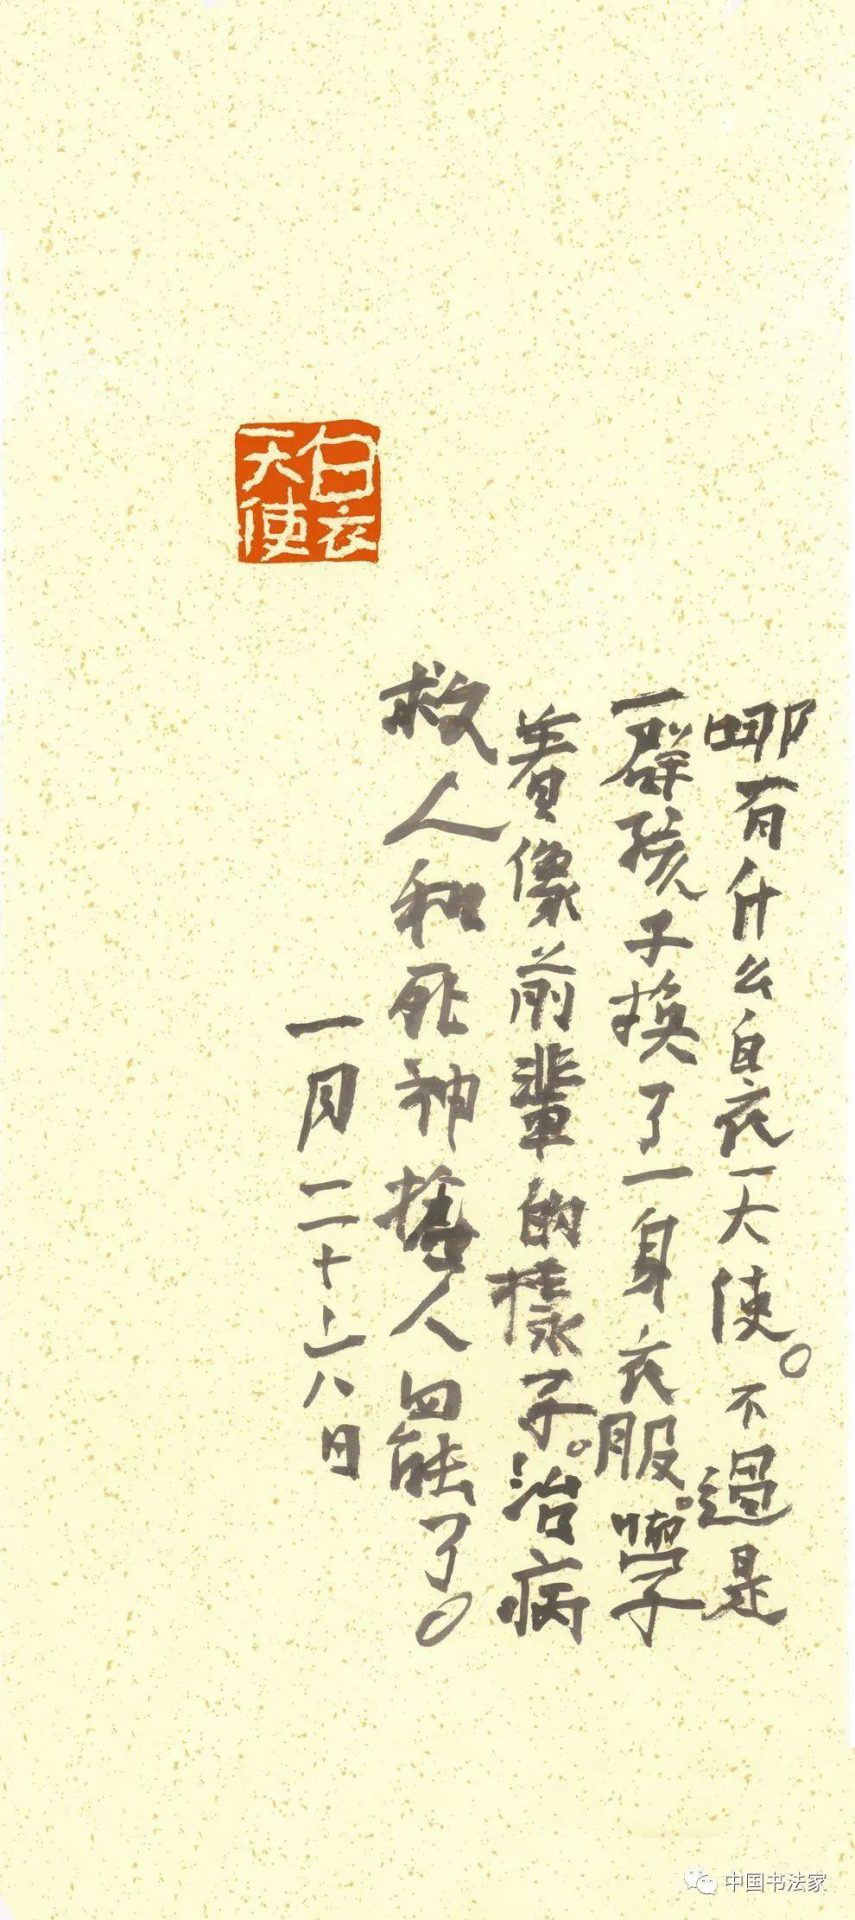 哪有什么白衣天使。不過是
一群孩子換了一身衣服。學
着像前輩的樣子。治病
救人和死神搶人罢能了。
一月二十六八日
白衣
天使
中国书法家